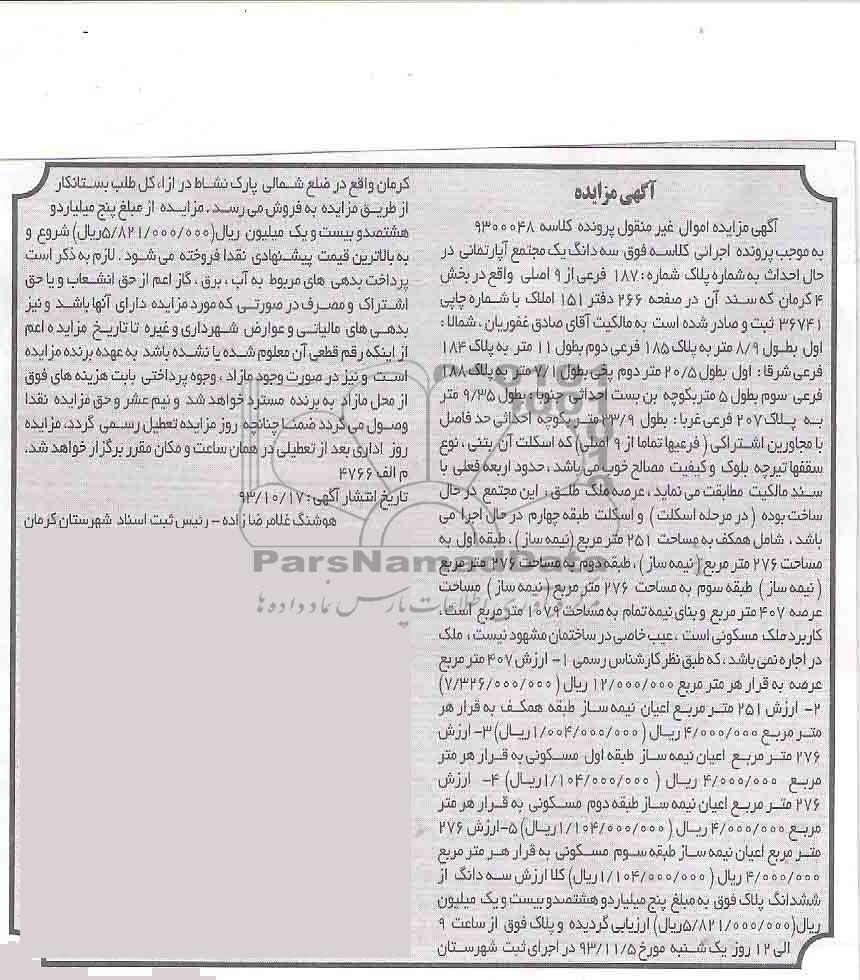 آگهی مزایده
آگهی مزایده اموال غیر منقول پرونده کلاسه ۹۳۰۰۰۴۸
به موجب پرونده اجرائی کلاسه فوق سه دانگ یک مجتمع آپارتمانی در
حال احداث به شماره پلاک شماره: ۱۸۷ فرعی از ۹ اصلی واقع در بخش
۴ کرمان که سند آن در صفحه ۲۶۶ دفتر ۱۵۱ املاک با شماره چاپی
۳۶۷۴۱ ثبت و صادر شده است به مالکیت آقای صادق غفوریان، شمالا:
اول بطول ۸/۹ متر به پلاک ۱۸۵ فرعی دوم بطول ۱۱ متر به پلاک ۱۸۴
فرعی شرقا: اول بطول ۲۰/۵ متر دوم پخی بطول ۷/۱ متر به پلاک ۱۸۸
فرعی سوم بطول ۵ متربکوچه بن بست احداثی جنوبا: بطول ۹/۳۵ متر
به پلاک ۲۰۷ فرعی غربا: بطول ۲۳/۹ متر بکوچه احداثی حد فاصل
با مجاورین اشتراکی (فرعیها تماما از ۹ اصلی) که اسکلت آن بتنی، نوع
سقفها تیرچه بلوک و کیفیت مصالح خوب می باشد، حدود اربعه فعلی با
سند مالکیت مطابقت می نماید، عرصه ملک طلق، این مجتمع در حال
ساخت بوده (در مرحله اسکلت) و اسکلت طبقه چهارم در حال اجرا می
باشد، شامل همکف به مساحت ۲۵۱ متر مربع (نیمه ساز)، طبقه اول به
مساحت ۲۷۶ متر مربع (نیمه ساز)، طبقه دوم به مساحت ۲۷۶ متر مربع
(نیمه ساز) طبقه سوم به مساحت ۲۷۶ متر مربع (نیمه ساز) مساحت
عرصه ۴۰۷ متر مربع و بنای نیمه تمام به مساحت ۱۰۷۹ متر مربع است،
کاربرد ملک مسکونی است، عیب خاصی در ساختمان مشهود نیست، ملک
در اجاره نمی باشد، که طبق نظر کارشناس رسمی ۱- ارزش ۴۰۷ متر مربع
عرصه به قرار هر متر مربع ۱۲/۰۰۰/۰۰۰ ریال (۷/۳۲۶/۰۰۰/۰۰۰)
۲- ارزش ۲۵۱ متر مربع اعیان نیمه ساز طبقه همکف به قرار هر
متر مربع ۴/۰۰۰/۰۰۰ ریال (۱/۰۰۴/۰۰۰/۰۰۰ریال) ۳- ارزش
۲۷۶ متر مربع اعیان نیمه ساز طبقه اول مسکونی به قرار هر متر
مربع ۴/۰۰۰/۰۰۰ ریال (۱/۱۰۴/۰۰۰/۰۰۰ریال) ۴- ارزش
۲۷۶ متر مربع اعیان نیمه ساز طبقه دوم مسکونی به قرار هر متر
مربع ۴/۰۰۰/۰۰۰ ریال (۱/۱۰۴/۰۰۰/۰۰۰ریال) ۵-ارزش ۲۷۶
متر مربع اعیان نیمه ساز طبقه سوم مسکونی به قرار هر متر مربع
۴/۰۰۰/۰۰۰ ریال (۱/۱۰۴/۰۰۰/۰۰۰ریال) کلا ارزش سه دانگ از
ششدانگ پلاک فوق به مبلغ پنج میلیارد و هشتصدو بیست و یک میلیون
ریال(۵/۸۲۱/۰۰۰/۰۰۰ریال) ارزیابی گردیده و پلاک فوق از ساعت ۹
الی ۱۲ روز یک شنبه مورخ ۹۳/۱۱/۵ در اجرای ثبت شهرستان
کرمان واقع در ضلع شمالی پارک نشاط در ازاء کل طلب بستانکار
از طریق مزایده به فروش می رسد. مزایده از مبلغ پنج میلیاردو
هشتصدو بیست و یک میلیون ریال(۵/۸۲۱/۰۰۰/۰۰۰ریال) شروع و
به بالاترین قیمت پیشنهادی نقدا فروخته می شود. لازم به ذکر است
پرداخت بدهی های مربوط به آب، برق، گاز اعم از حق انشعاب و یا حق
اشتراک و مصرف در صورتی که مورد مزایده دارای آنها باشد و نیز
بدهی های مالیاتی و عوارض شهرداری و غیره تا تاریخ مزایده اعم
از اینکه رقم قطعی آن معلوم شده یا نشده باشد به عهده برنده مزایده
است و نیز در صورت وجود مازاد، وجوه پرداختی بابت هزینه های فوق
از محل مازاد به برنده مسترد خواهد شد و نیم عشر و حق مزایده نقدا
وصول می گردد ضمنا چنانچه روز مزایده تعطیل رسمی گردد. مزایده
روز اداری بعد از تعطیلی در همان ساعت و مکان مقرر برگزار خواهد شد.
م الف ۴۷۶۶
تاریخ انتشار آگهی: ۹۳/۱۰/۱۷
هوشنگ غلامرضا زاده - رئیس ثبت اسناد شهرستان کرمان
ParsNamadData